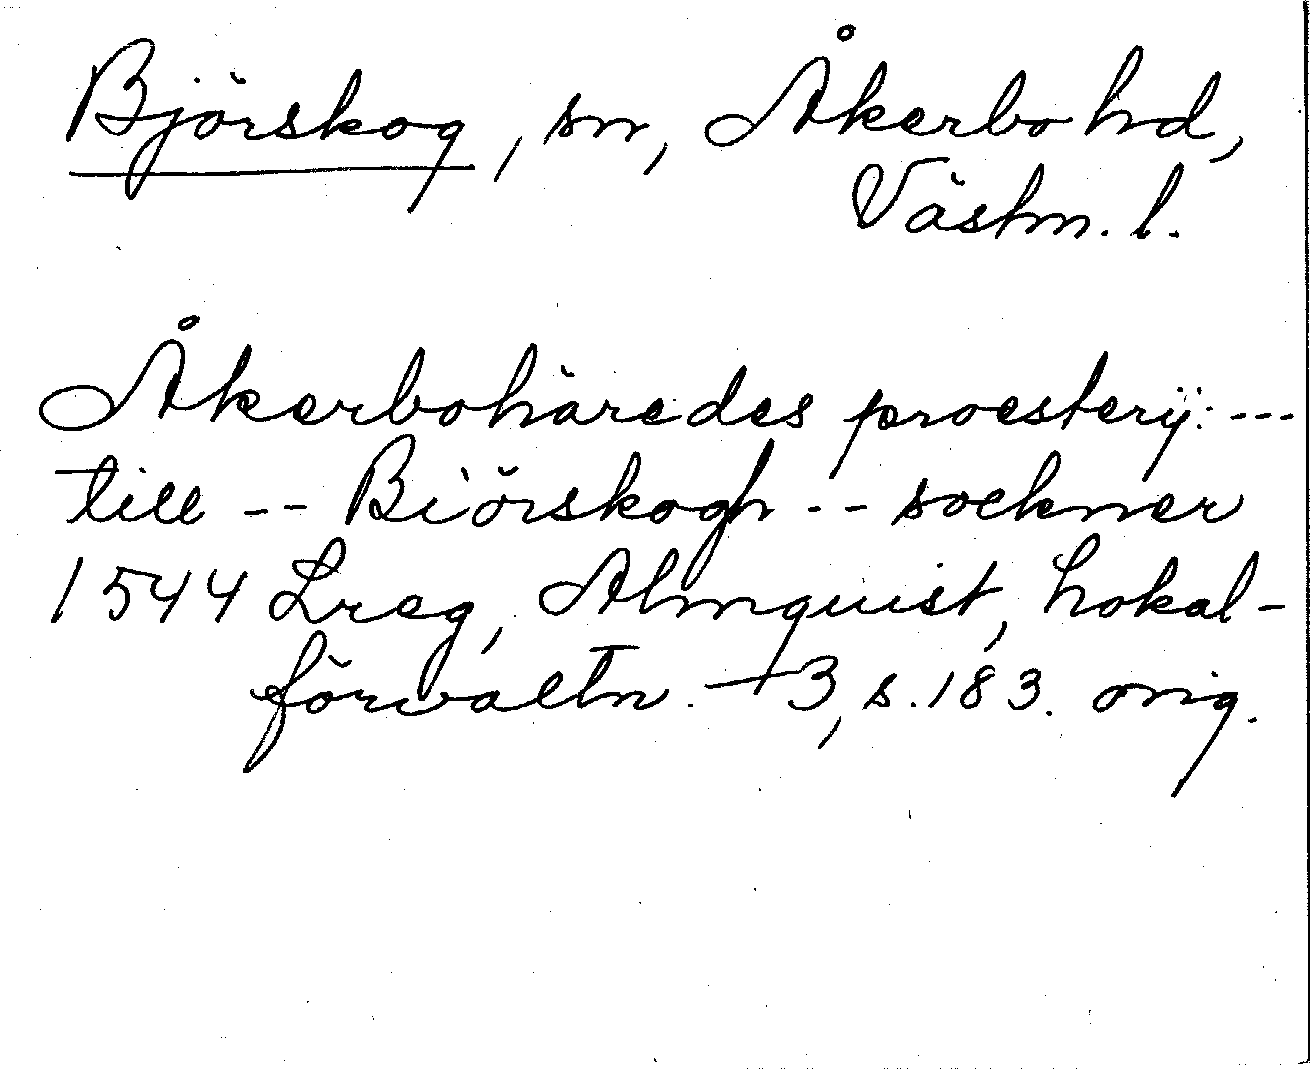 Björskog, sn, Åkerbo hd,
Västm. l.
Åkerbohäredes proesterij: ---
till -- Biörskogh -- sockner
1544 Lreg, Almquist, Lokal-
förvaltn. 3, s. 183. orig.